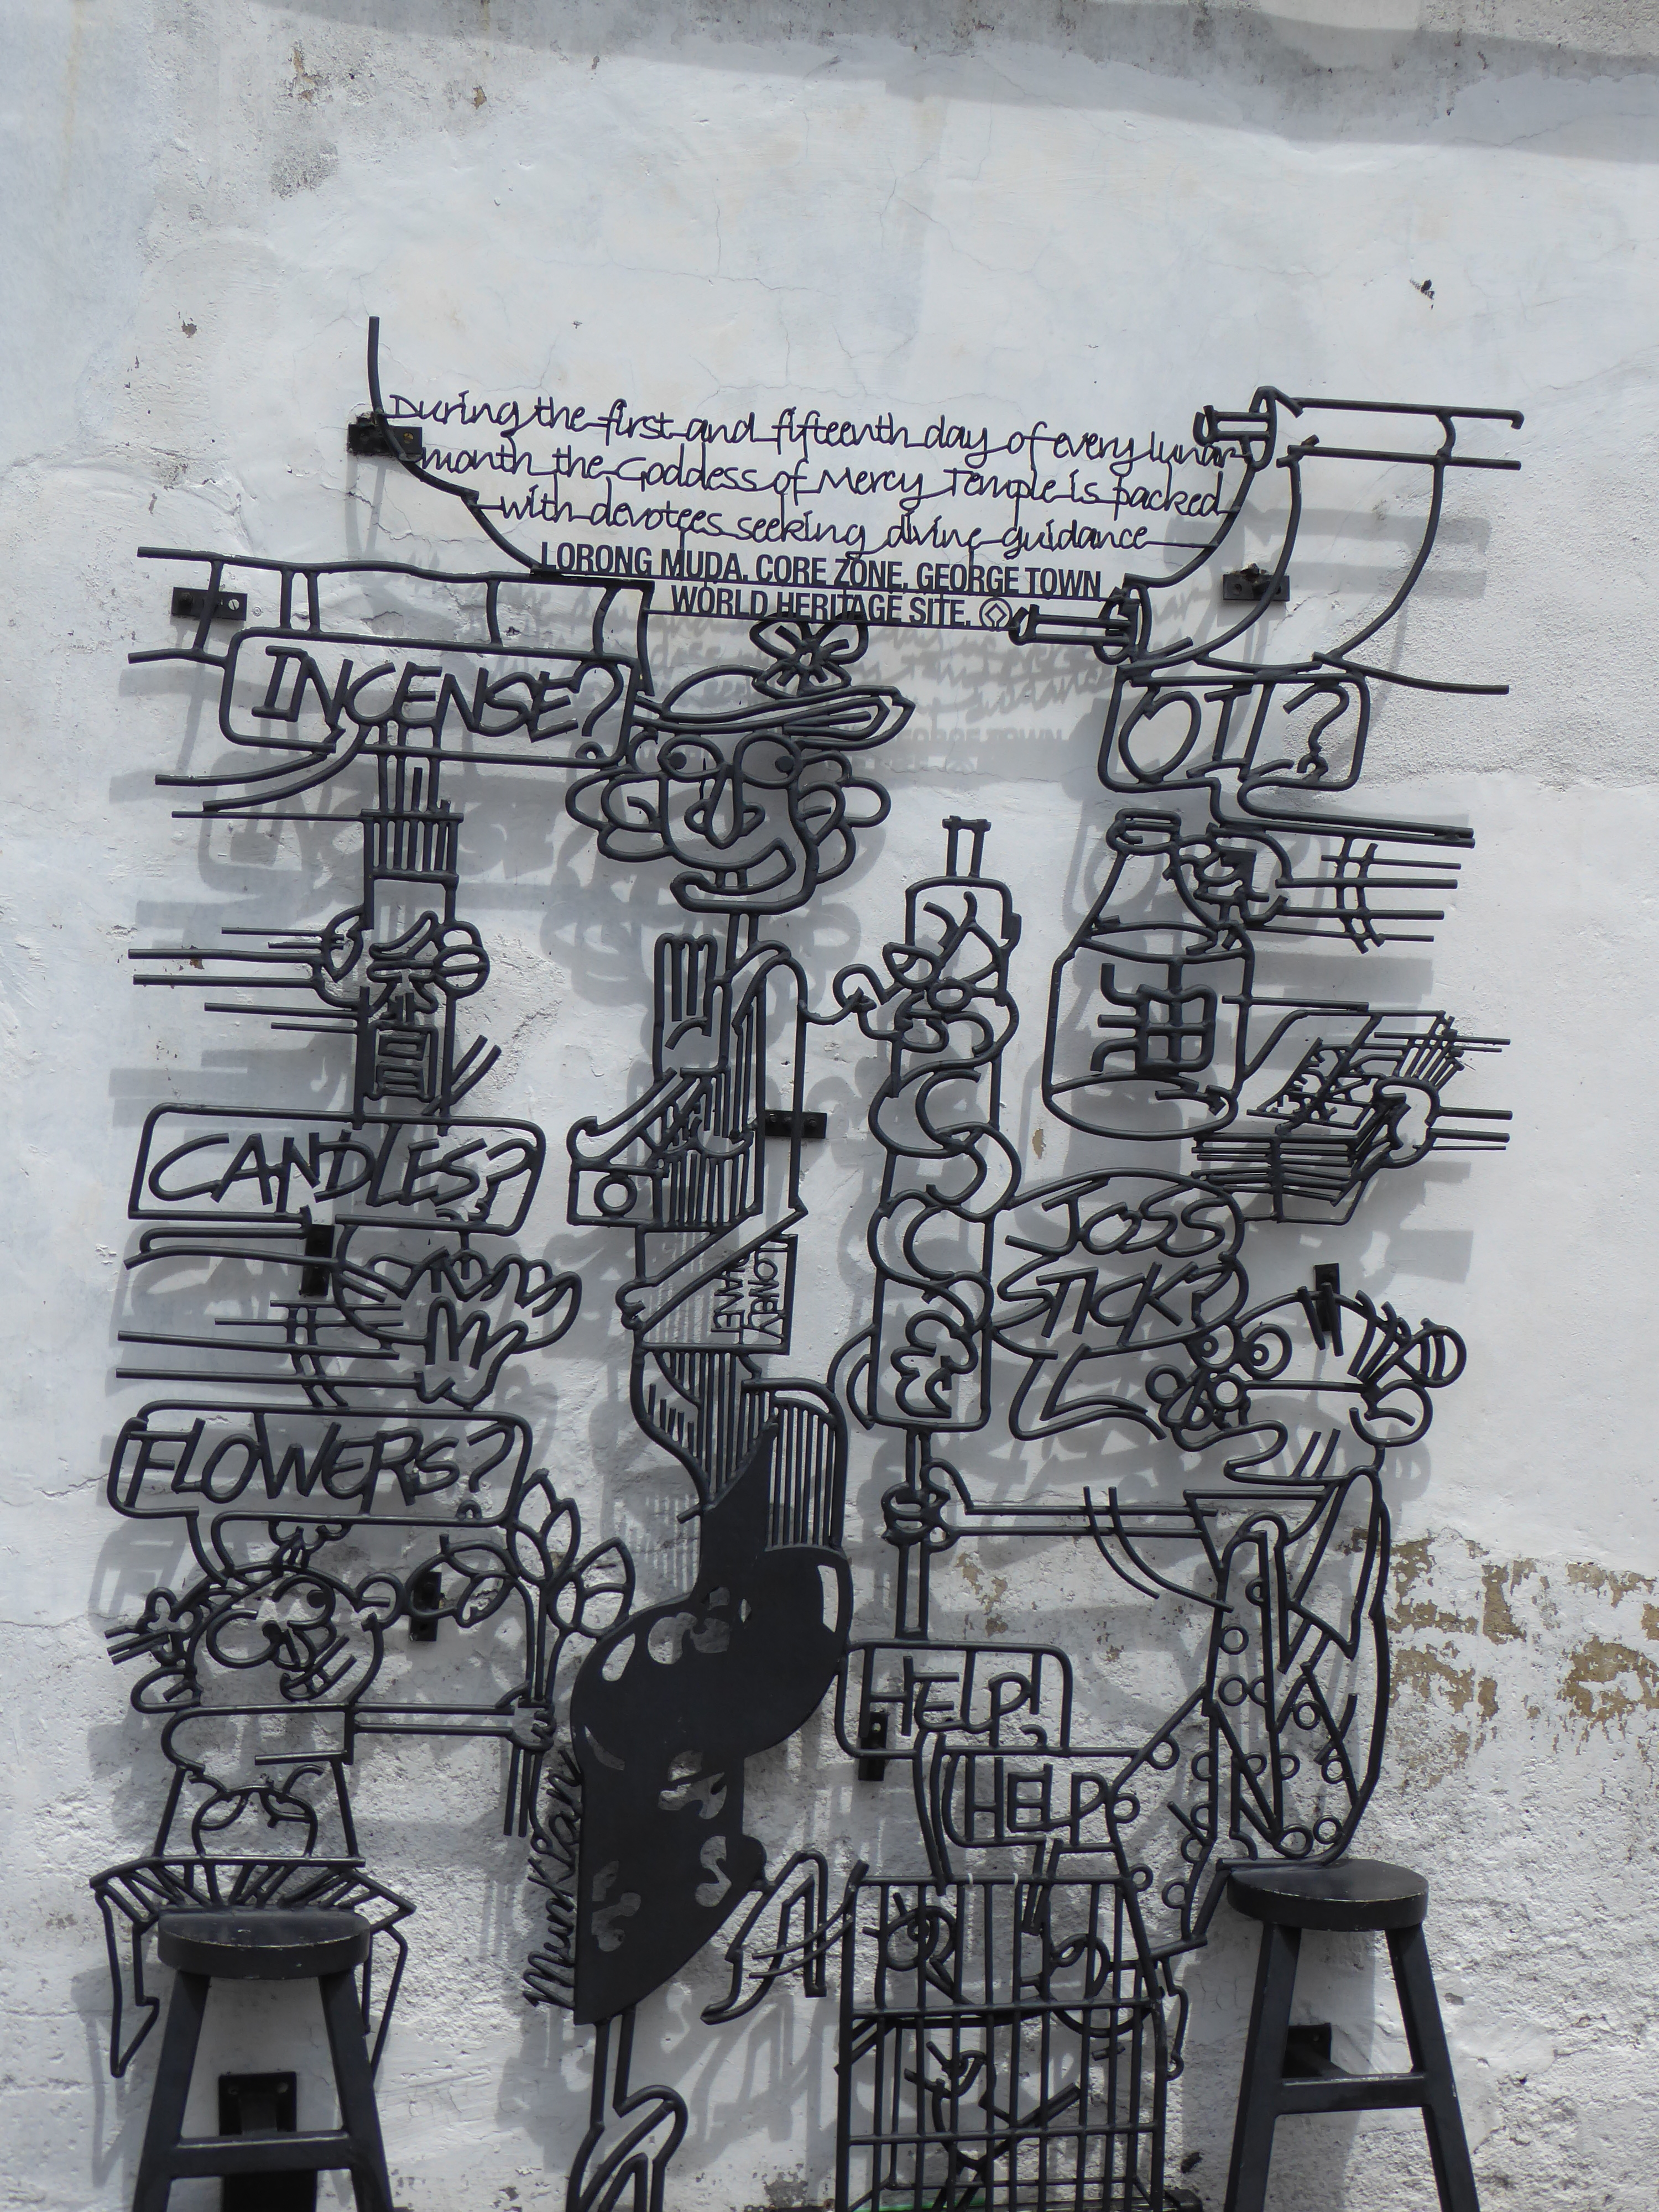 During the first and fifteenth day of every lunar
month the Goddess of Mercy Temple is packed
with devotees seeking divine guidance
LORONG MUDA, CORE ZONE, GEORGE TOWN
WORLD HERITAGE SITE.
INCENSE?
OIL?
香
油
CANDLES?
JOSS
STICK?
LONELY
PLANET
FLOWERS?
HELP!
HELP
Munkian